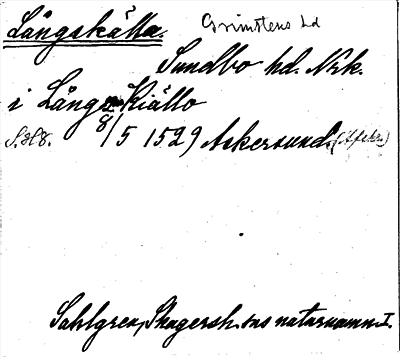 Långskälla. Grimstens hd
Sundbo hd. Nrk.
i Långz Kiällo
S. H8. 8/5 1529 Askersund.
Sahlgren, Skagersh.s ns naturnamn I.